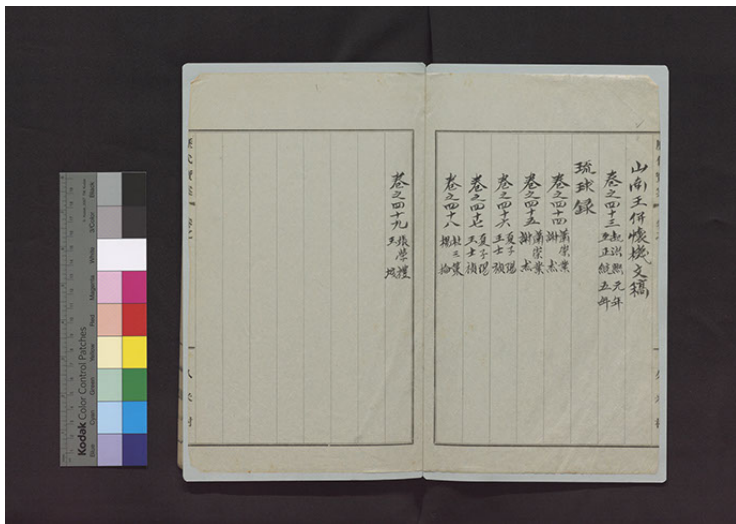 山南王併懷機文稿
卷之四十三 起洪熙元年 至正統五年
琉球錄
卷之四十四 蕭崇業 謝杰
卷之四十五 蕭崇業 謝杰
卷之四十六 夏子陽 王士禎
卷之四十七 夏子陽 王士禎
卷之四十八 杜三策 楊掄
卷之四十九 張學禮 王垓
Kodak Color Control Patches
Blue Cyan Green Yellow Red Magenta White 3/Color Black